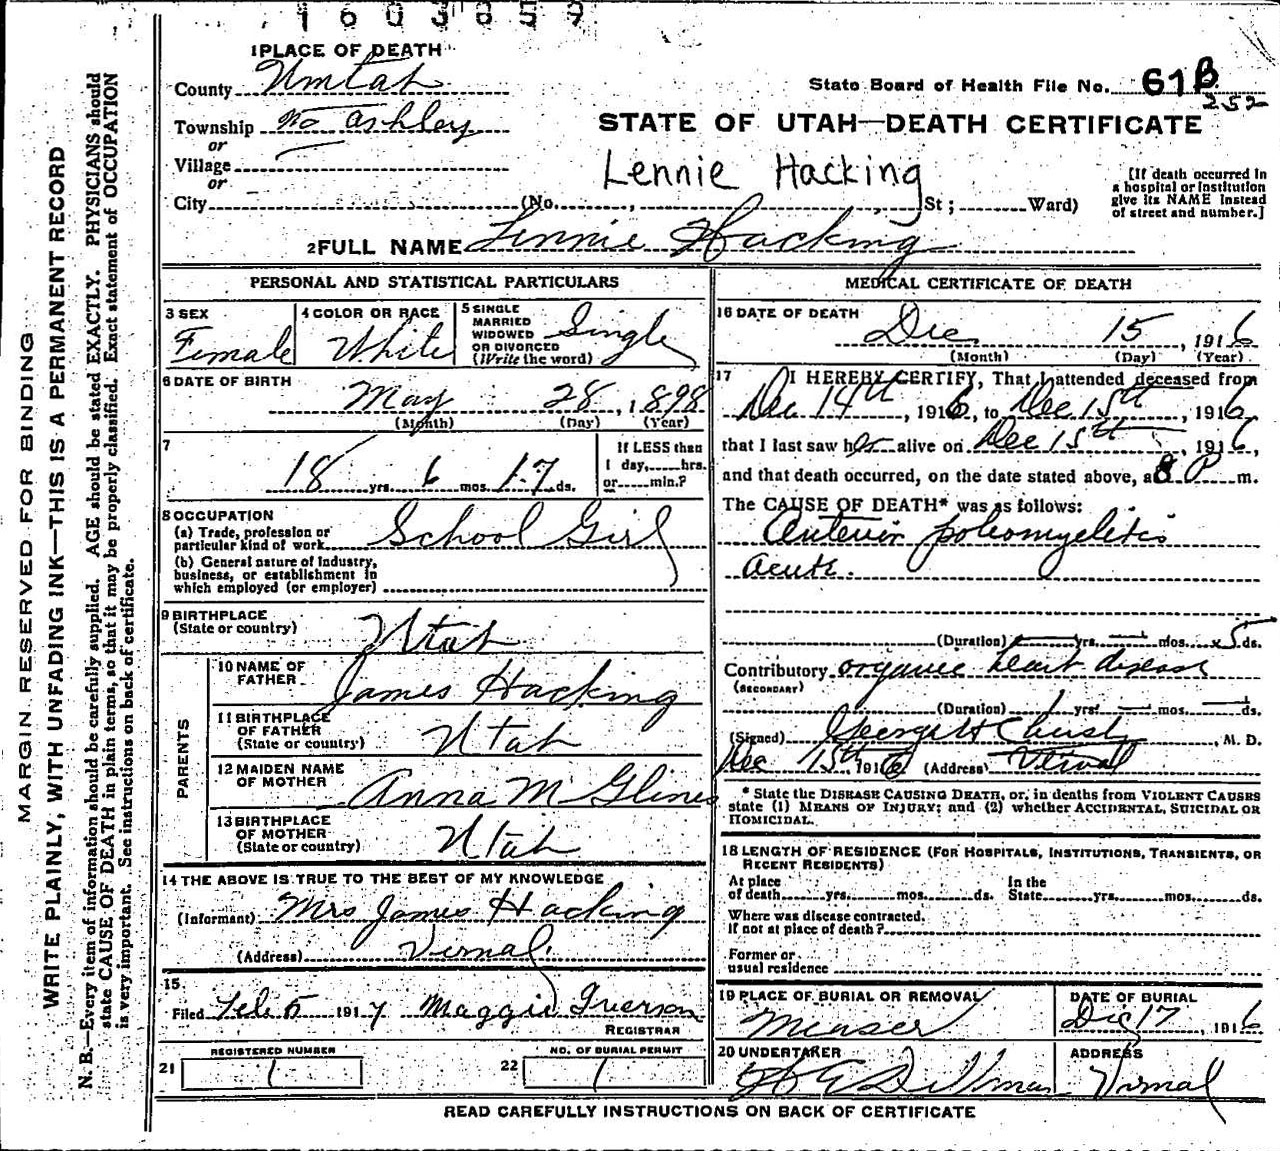 1603859
1 PLACE OF DEATH
County Uintah
State Board of Health File No. 61 B
252
Township No Ashley
or
STATE OF UTAH—DEATH CERTIFICATE
Village
or
Lennie Hacking
[If death occurred in a hospital or institution give its NAME instead of street and number.]
City (No. , St ; Ward)
2 FULL NAME Lennie Hacking
PERSONAL AND STATISTICAL PARTICULARS
3 SEX Female
4 COLOR OR RACE White
5 SINGLE MARRIED WIDOWED OR DIVORCED (Write the word) Single
6 DATE OF BIRTH
May 28, 1898
(Month) (Day) (Year)
7
18 yrs. 6 mos. 17 ds.
If LESS than 1 day, hrs. or min.?
8 OCCUPATION
(a) Trade, profession or particular kind of work School Girl
(b) General nature of industry, business, or establishment in which employed (or employer)
9 BIRTHPLACE
(State or country) Utah
PARENTS
10 NAME OF FATHER James Hacking
11 BIRTHPLACE OF FATHER (State or country) Utah
12 MAIDEN NAME OF MOTHER Anna M Glines
13 BIRTHPLACE OF MOTHER (State or country) Utah
14 THE ABOVE IS TRUE TO THE BEST OF MY KNOWLEDGE
(Informant) Mrs James Hacking
(Address) Vernal
15
Filed Feb 5 1917 Maggie
REGISTRAR
21 REGISTERED NUMBER 1
22 NO. OF BURIAL PERMIT 1
MEDICAL CERTIFICATE OF DEATH
16 DATE OF DEATH
Dec 15, 1916
(Month) (Day) (Year)
17 I HEREBY CERTIFY, That I attended deceased from
Dec 14th, 1916, to Dec 15th, 1916
that I last saw her alive on Dec 15th, 1916,
and that death occurred, on the date stated above, a 8 P m.
The CAUSE OF DEATH* was as follows:
Anterior poliomyelitis
acute.
(Duration) yrs. mos. 5 ds.
Contributory organic heart disease
(SECONDARY)
(Duration) 1 yrs. mos. ds.
(Signed) George H Christy, M. D.
Dec 15th, 1916 (Address) Vernal
* State the DISEASE CAUSING DEATH, or, in deaths from VIOLENT CAUSES
state (1) MEANS OF INJURY; and (2) whether ACCIDENTAL, SUICIDAL OR
HOMICIDAL.
18 LENGTH OF RESIDENCE (FOR HOSPITALS, INSTITUTIONS, TRANSIENTS, OR RECENT RESIDENTS)
At place of death yrs. mos. ds. In the State yrs. mos. ds.
Where was disease contracted.
If not at place of death?
Former or
usual residence
19 PLACE OF BURIAL OR REMOVAL
DATE OF BURIAL
Dec 17, 1916
20 UNDERTAKER
ADDRESS
Vernal
READ CAREFULLY INSTRUCTIONS ON BACK OF CERTIFICATE
MARGIN RESERVED FOR BINDING
WRITE PLAINLY, WITH UNFADING INK—THIS IS A PERMANENT RECORD
N. B.—Every item of information should be carefully supplied. AGE should be stated EXACTLY. PHYSICIANS should
state CAUSE OF DEATH in plain terms, so that it may be properly classified. Exact statement of OCCUPATION
is very important. See instructions on back of certificate.